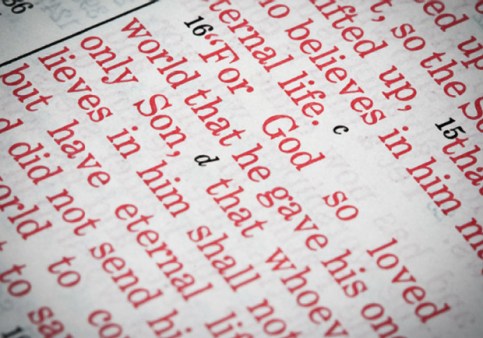 ed up
t, so the So
ifted up, 15tha
o believes in him ma
ternal life. c
16 “For God so loved
world that he gave his on
only Son, d that whoev
lieves in him shall not
but have eternal li
d did not send hi
orld to co
t to sa